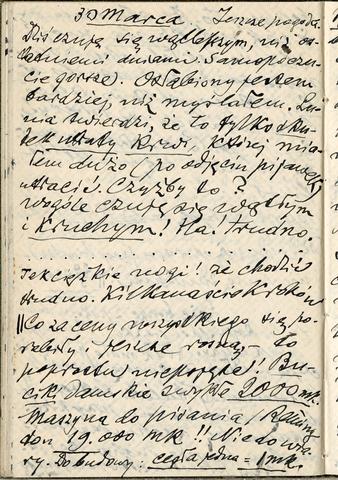 30 Marca. Jeszcze pogoda.
Dziś czuję się wątlejszym, niż os-
tatniemi dniami. Samopoczu-
cie gorsze. Osłabiony jestem
bardziej, niż myślałem. Lu-
nia twierdzi, że to tylko sku-
tek utraty Krwi, której mia-
łem dużo (po odjęciu pijawek)
utracić. Czyżby to?
wogóle czuję się wątłym
i Kruchym! Ha! trudno.
tak ciężkie nogi! że chodzić
trudno. Kilkanaście Kroków
Co za ceny wszystkiego się po-
robiły, jeszcze rosną – to
poprostu niepojęte! Bu-
ciki damskie zwykłe 2000 mk.
Maszyna do pisania (Reming
ton 19.000 mk!! Nie do wia-
ry. Do budowy: cegła jedna = 1 mk.